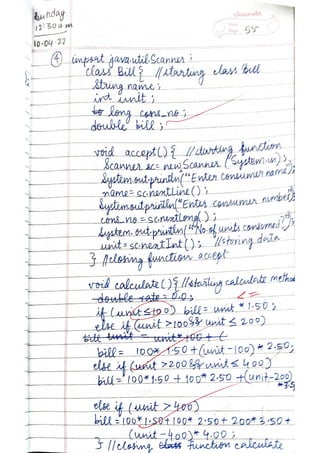 Sunday
12:30 am
10-04-22
classmate
Date
Page 55
④ import java.util.Scanner ;
class Bill { // starting class Bill
String name ;
int unit ;
long cons_no ;
double bill ;
void accept() { // starting function
Scanner sc = new Scanner (System.in) ;
System.out.println("Enter consumer name");
name = sc.nextLine() ;
System.out.println("Enter consumer number");
cons_no = sc.nextLong() ;
System.out.println("No of units consumed");
unit = sc.nextInt() ; // storing data
} // closing function accept
void calculate() { // starting calculate method
double rate = 0.0 ;
if (unit ≤ 100) bill = unit * 1.50 ;
else if (unit > 100 && unit ≤ 200)
bill unit = unit * 100 + (
bill = 100 * 1.50 + (unit - 100) * 2.50 ;
else if (unit > 200 && unit ≤ 400)
bill = 100 * 1.50 + 100 * 2.50 + (unit - 200)
* 3.5
else if (unit > 400)
bill = 100 * 1.50 + 100 * 2.50 + 200 * 3.50 +
(unit - 400) * 4.00 ;
} // closing class function calculate